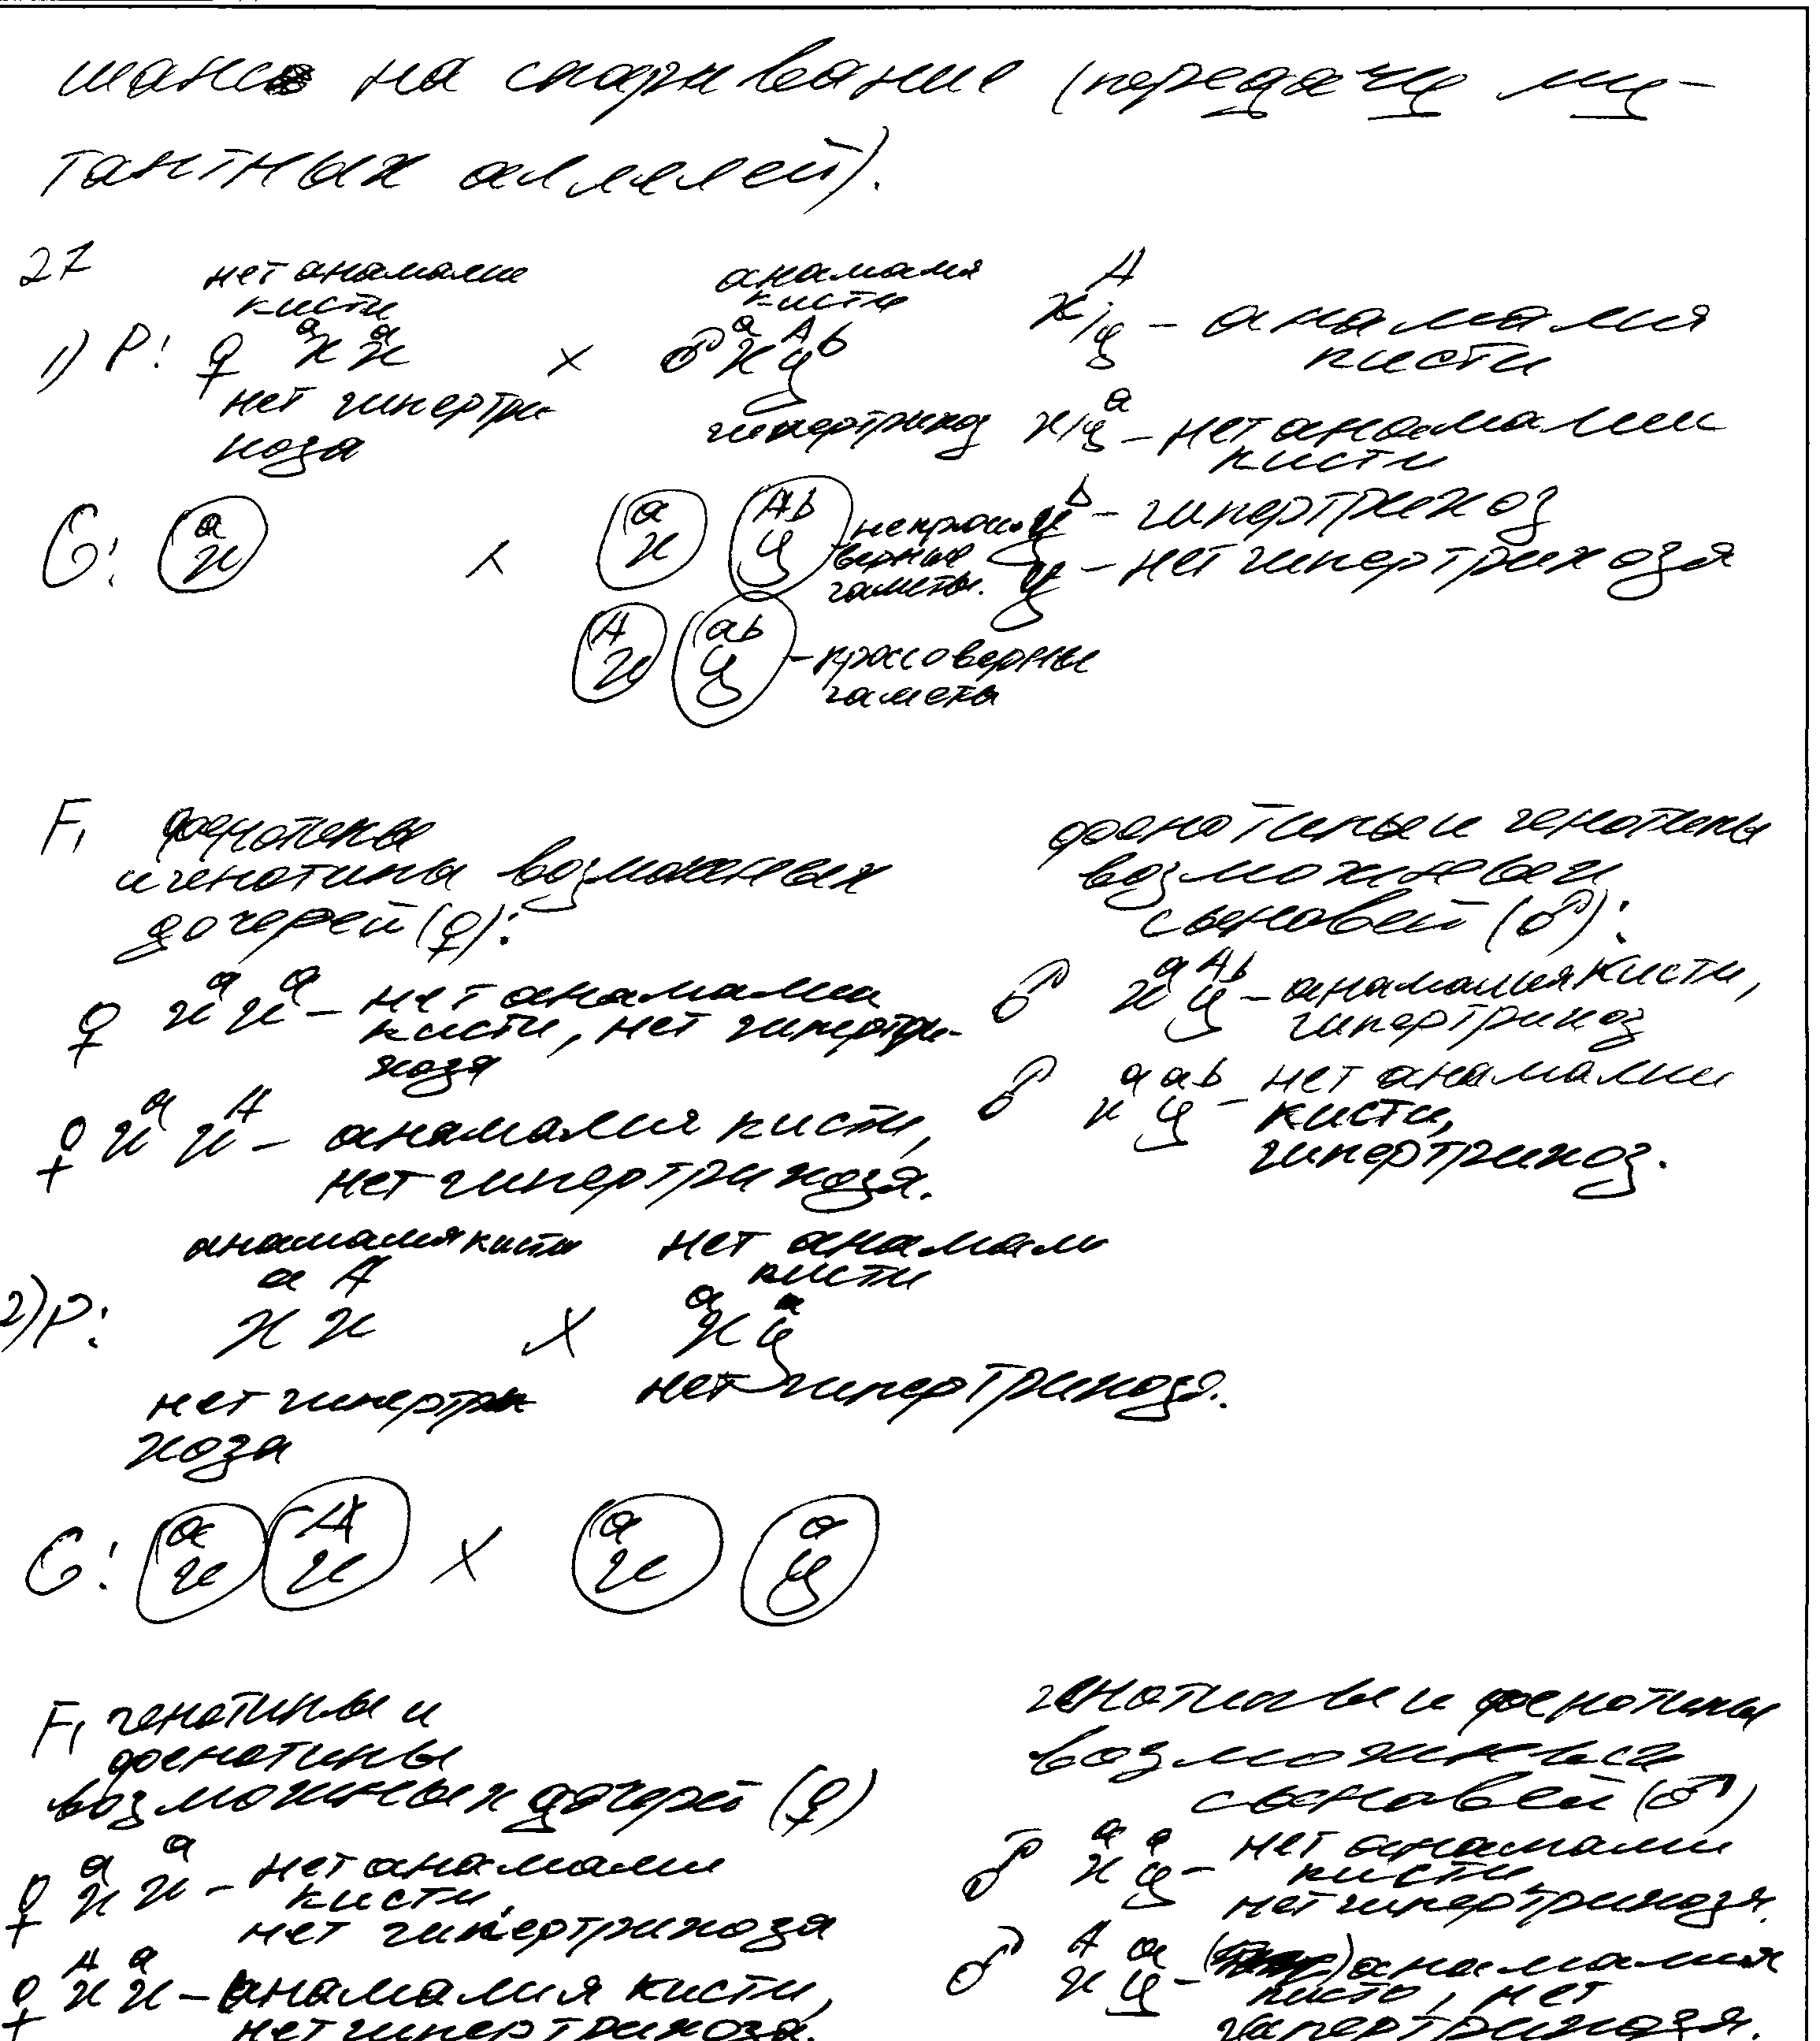 шансо на спаривание (передачу му-
тантных аллелей).
27
нет анамалии кисти
анамалия кисти
A
x/y – анамалия кисти
1) P: ♀ xᵃxᵃ × ♂ xᵃyᴬᵇ
нет гипертрихоза
гипертрихоз
x/yᵃ – нет анамалии кисти
yᵇ – гипертрихоз
G: xᵃ × xᵃ yᴬᵇ некроссоверные гаметы.
y – нет гипертрихоза
xᴬ yᵃᵇ – кроссоверны гаметы
F₁ фенотипы
и генотипы возможных
дочерей (♀):
♀ xᵃxᵃ – нет анамалии
кисти, нет гипертри-
хоза
♀ xᵃxᴬ – анамалия кисти,
нет гипертрихоза.
фенотипы и генотипы
возможных
сыновей (♂):
♂ xᵃyᴬᵇ – анамалия кисти,
гипертрихоз
♂ xᵃyᵃᵇ – нет анамалии
кисти,
гипертрихоз.
анамалия кисти
нет анамали
кисти
2) P: xᵃxᴬ × xᵃyᵃ
нет гипертри
хоза
нет гипертрихоза.
G: xᵃ xᴬ × xᵃ yᵃ
F₁ генотипы и
фенотипы
возможных дочерей (♀)
♀ xᵃxᵃ – нет анамалии
кисти,
нет гипертрихоза
♀ xᴬxᵃ – анамалия кисти,
нет гипертрихоза.
генотипы и фенотипы
возможных
сыновей (♂)
♂ xᵃyᵃ – нет анамали
кисти
нет гипертрихоза.
♂ xᴬyᵃ – анамалия
кисто, нет
гипертрихоза.